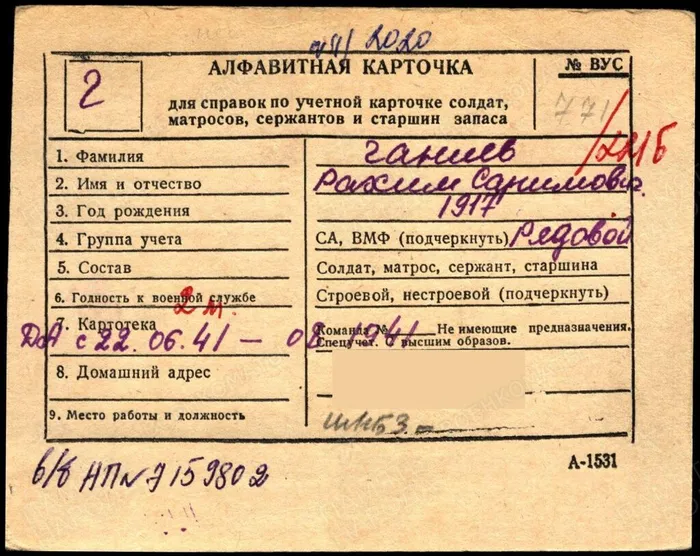 2020
АЛФАВИТНАЯ КАРТОЧКА
№ ВУС
Г
для справок по учетной карточке солдат,
матросов, сержантов и старшин запаса
771
121Б
1. Фамилия
Ганиев
2. Имя и отчество
Рахим Саримович.
3. Год рождения
1917
4. Группа учета
СА, ВМФ (подчеркнуть) Рядовой
5. Состав
Солдат, матрос, сержант, старшина
6. Годность к военной службе
Строевой, нестроевой (подчеркнуть)
2м.
7. Картотека
Команда № Не имеющие предназначения.
Спецучет. С высшим образов.
ДА с 22.06.41 — 08.1941
8. Домашний адрес
9. Место работы и должность
в/б НП № 7159802
А-1531